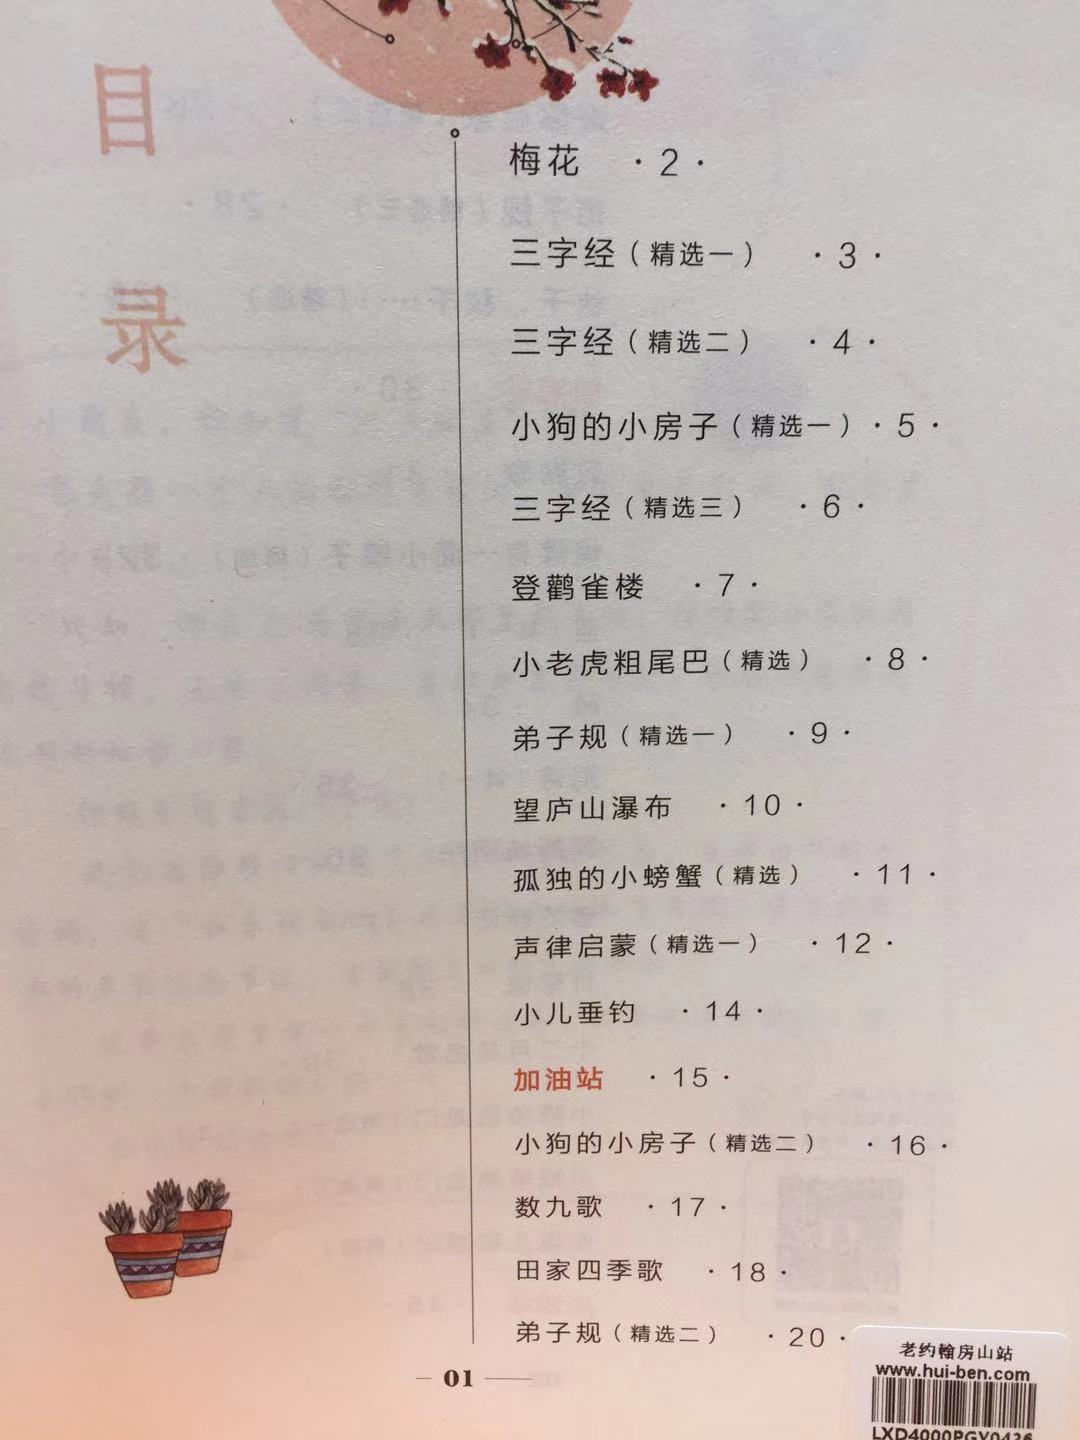 目录
梅花 ·2·
三字经（精选一） ·3·
三字经（精选二） ·4·
小狗的小房子（精选一）·5·
三字经（精选三） ·6·
登鹳雀楼 ·7·
小老虎粗尾巴（精选） ·8·
弟子规（精选一） ·9·
望庐山瀑布 ·10·
孤独的小螃蟹（精选） ·11·
声律启蒙（精选一） ·12·
小儿垂钓 ·14·
加油站 ·15·
小狗的小房子（精选二） ·16·
数九歌 ·17·
田家四季歌 ·18·
弟子规（精选二） ·20·
01
老约翰房山站
www.hui-ben.com